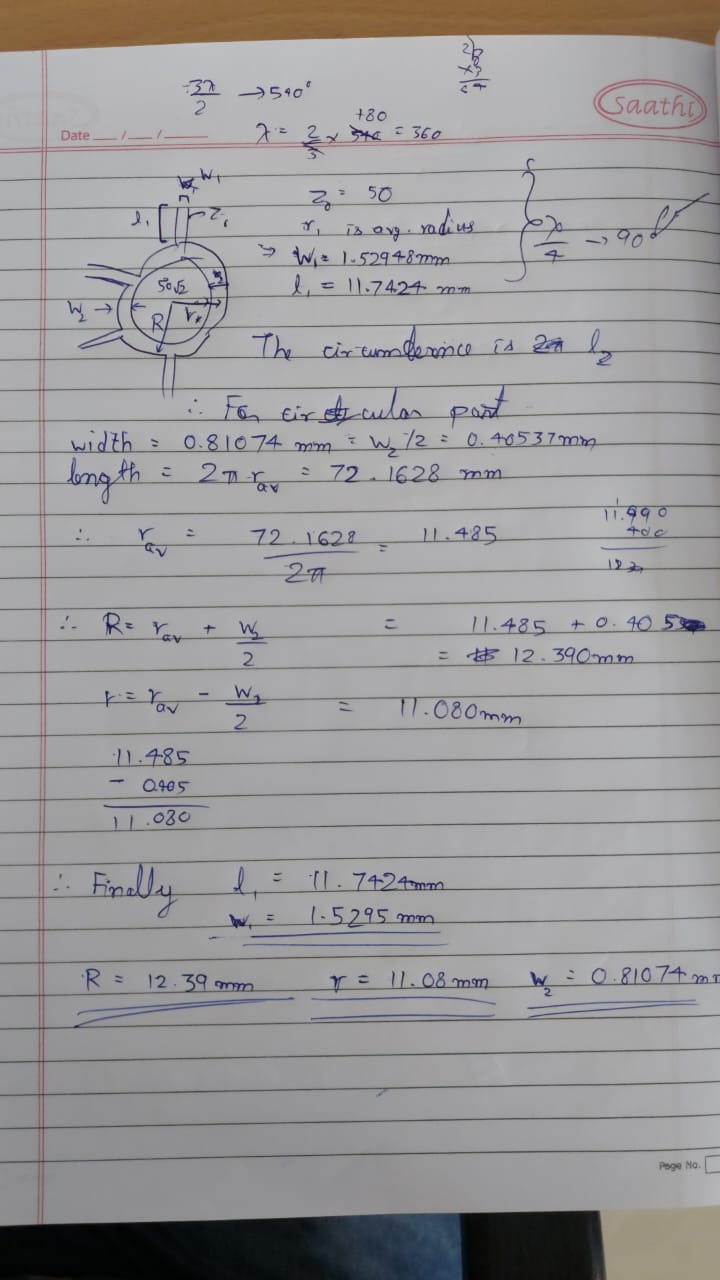 3λ/2 → 540°
28
x3
Saathi
Date __/__/__
λ = 2/3 x 540 180 = 360
W₁
l₁ Z₀
50√2
W₂ →
R
Z₀ = 50
r₁ is avg. radius
⇒ W₁ = 1.52948mm
l₁ = 11.7424 mm
λ/4 → 90°
The circumference is l₂
∴ For circular part
width = 0.81074 mm = W₂/2 = 0.40537mm
length = 2π r_av = 72.1628 mm
∴ r_av = 72.1628/2π = 11.485
11.990
400
∴ R = r_av + W₂/2 = 11.485 + 0.405
= 12.390mm
r = r_av - W₂/2 = 11.080mm
11.485
- 0.405
11.080
∴ Finally l₁ = 11.7424mm
W₁ = 1.5295 mm
R = 12.39 mm r = 11.08 mm W₂ = 0.81074 mm
Page No.